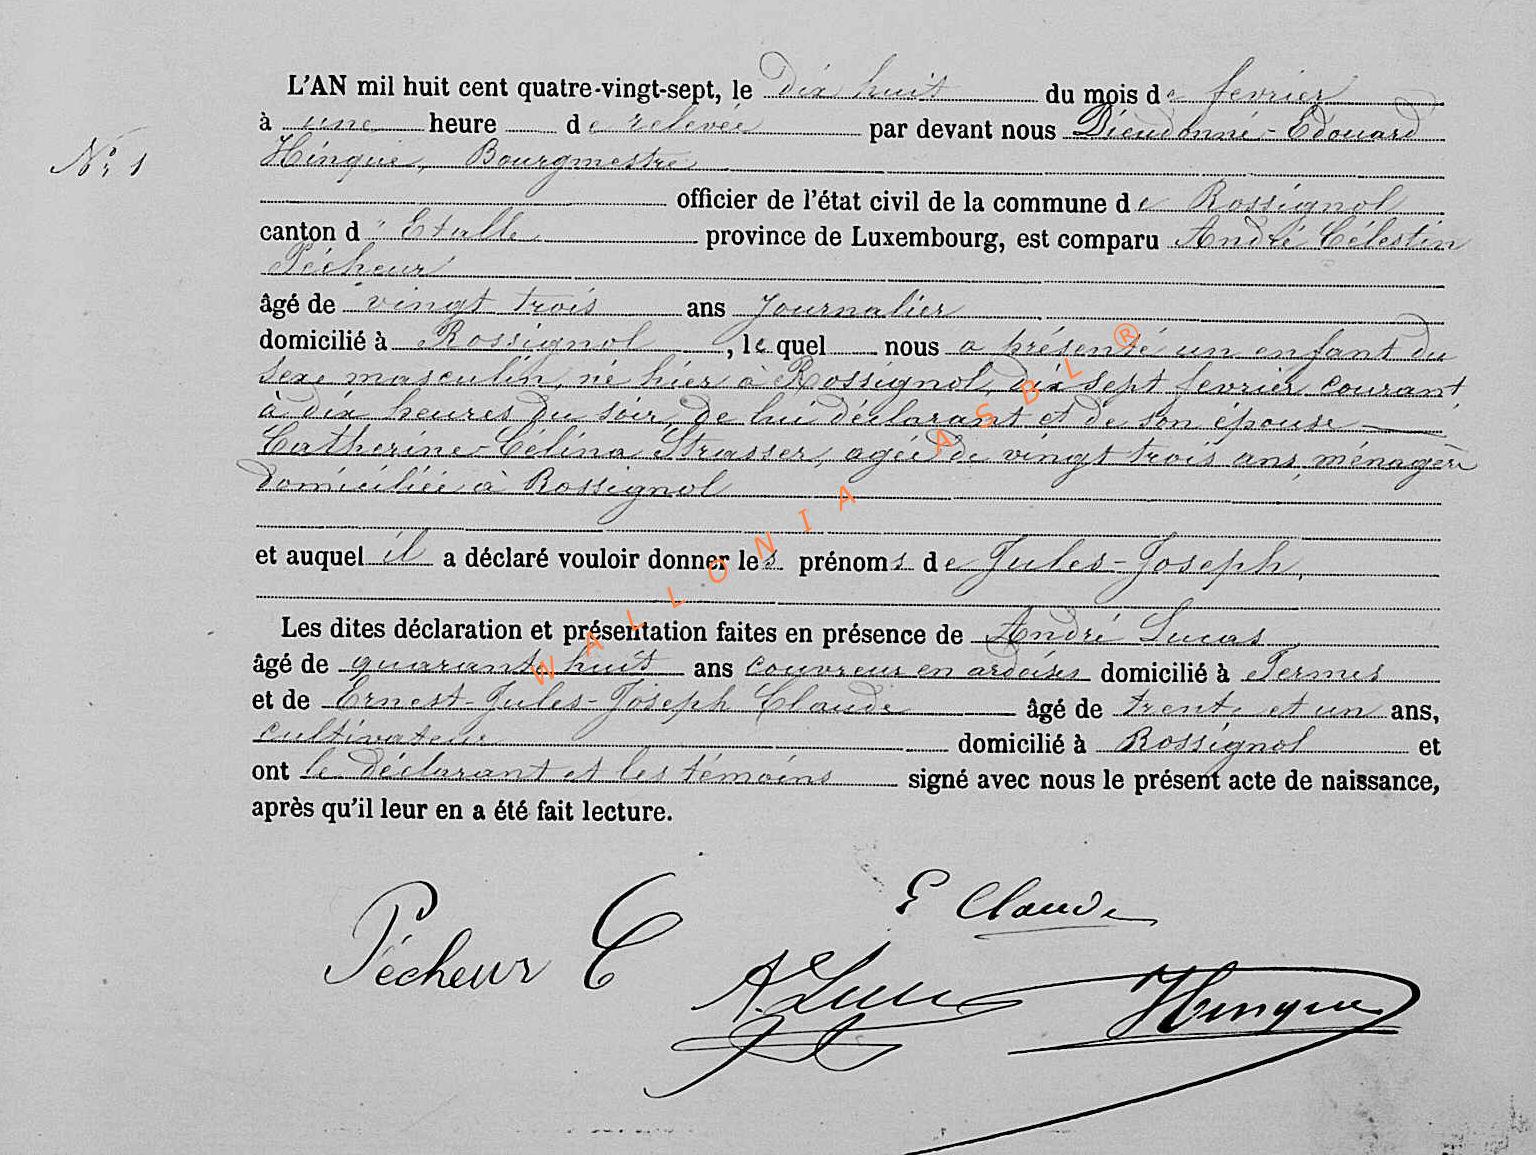 L'AN mil huit cent quatre-vingt-sept, le dix huit du mois de fevrier
à une heure de relevée par devant nous Dieudonné-Edouard
Nº 1
Hinque, Bourgmestre
officier de l'état civil de la commune de Rossignol
canton d'Etalle province de Luxembourg, est comparu André Célestin
Pécheur
âgé de vingt trois ans Journalier
domicilié à Rossignol, lequel nous a présenté un enfant du
sexe masculin, né hier à Rossignol, dix sept fevrier courant,
à dix heures du soir, de lui déclarant et de son épouse
Catherine-Célina Strasser, agée de vingt trois ans, ménagère
domiciliée à Rossignol
et auquel il a déclaré vouloir donner les prénoms de Jules-Joseph,
Les dites déclaration et présentation faites en présence de André Lucas
âgé de quarante huit ans couvreur en ardoises domicilié à Termes
et de Ernest-Jules-Joseph Claude âgé de trente et un ans,
cultivateur domicilié à Rossignol et
ont le déclarant et les témoins signé avec nous le présent acte de naissance,
après qu'il leur en a été fait lecture.
E Claude
Pécheur C
A. Lucas
Hinque
WALLONIA ASBL ®